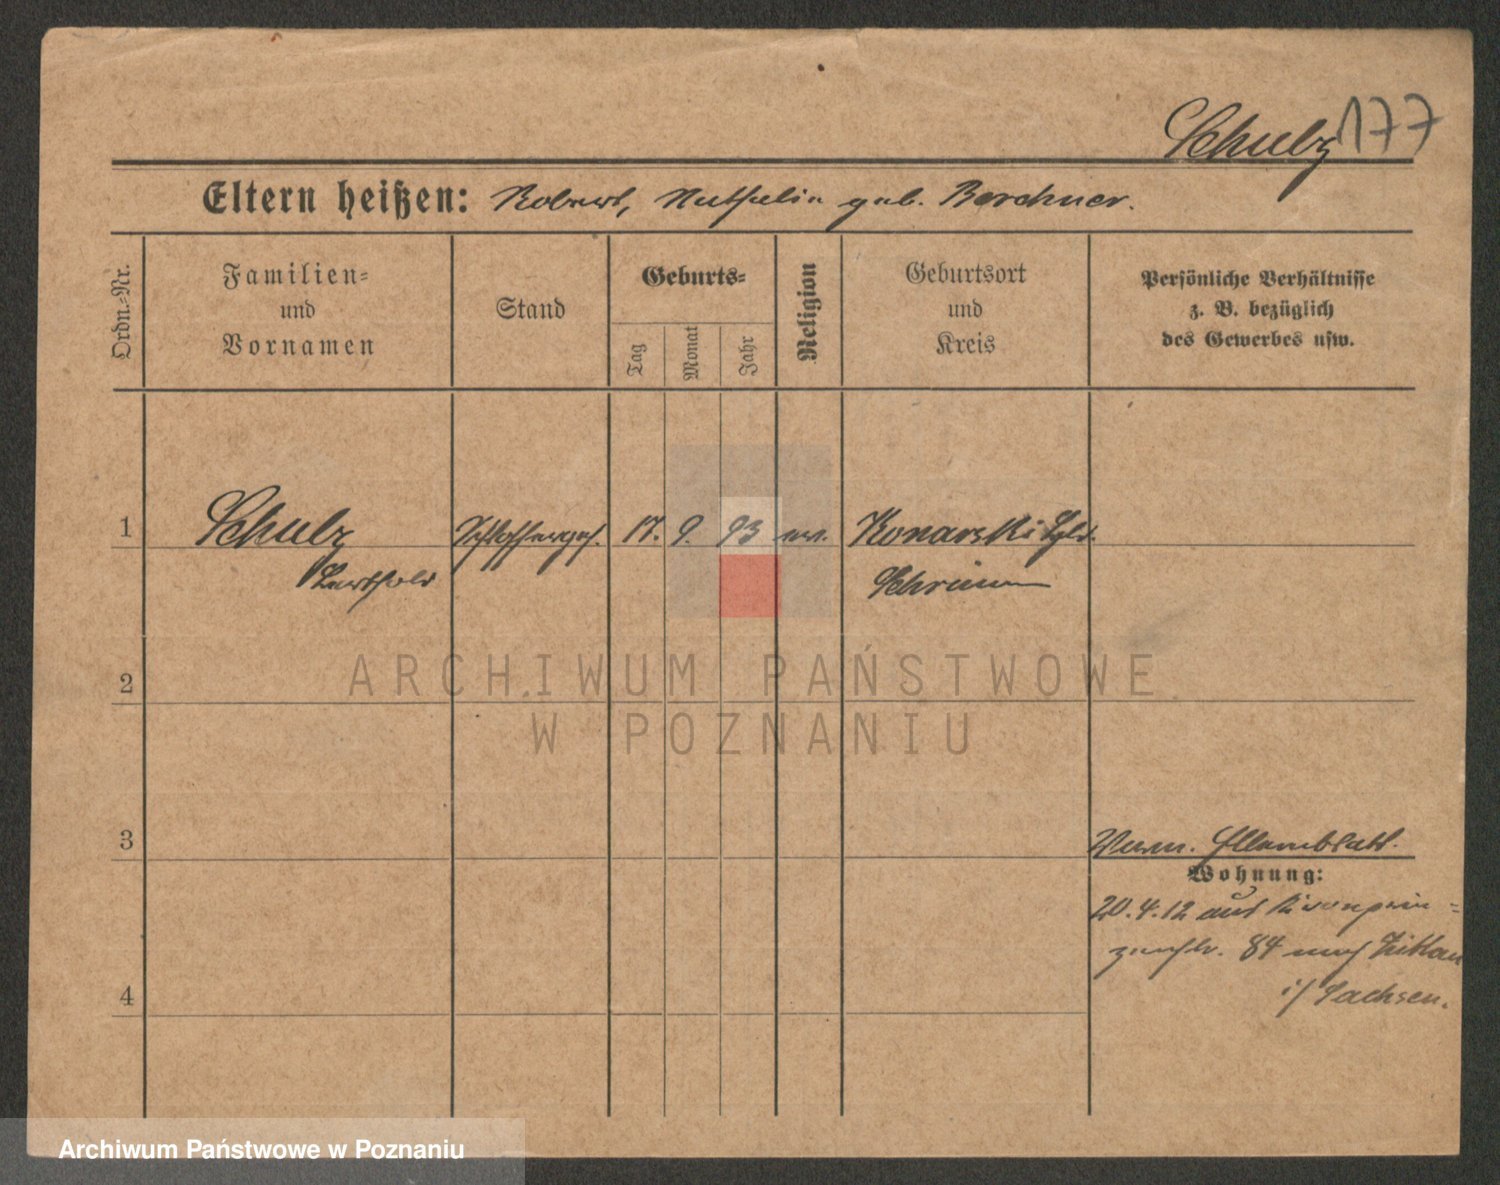 Schulz 177
Eltern heißen: Robert, Mathilde geb. Berchner.
Ordn.-Nr.
Familien-
und
Vornamen
Stand
Geburts-
Tag
Monat
Jahr
Religion
Geburtsort
und
Kreis
Persönliche Verhältnisse
z. B. bezüglich
des Gewerbes usw.
1 Schulz Schlosserges. 17. 9. 93 ev. Konarski
Berthold Schrimm
2
ARCHIWUM PAŃSTWOWE
W POZNANIU
3
Verm. Elternblatt.
Wohnung:
20.4.12 aus Kronprin-
zenstr. 84 nach Zittau
i/ Sachsen.
4
Archiwum Państwowe w Poznaniu